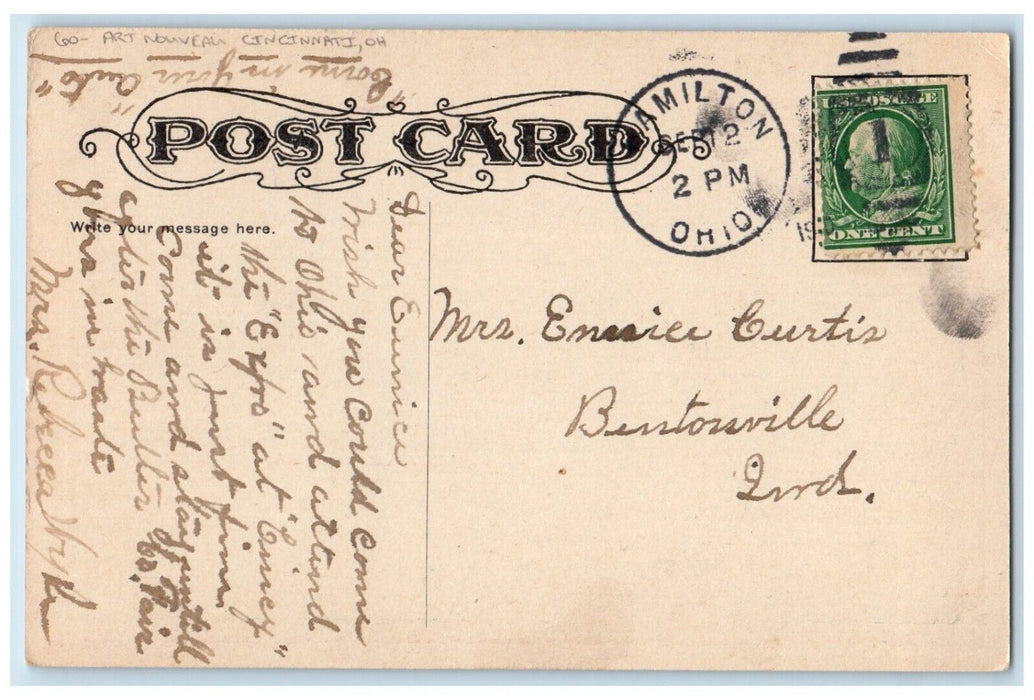 60- ART NOUVEAU CINCINNATI, OH
"Come in your Auto"
POST CARD
HAMILTON
SEP 12
2 PM
OHIO
U.S. POSTAGE
1
ONE CENT
Write your message here.
Dear Eunice
Wish you could come
to Ohio and attend
the "Expo" at "Cincy"
it is just fine.
Come and stay until
after the Butler Co. Fair
yours in haste
Mrs. Rebecca
Mrs. Eunice Curtis
Bentonville
Ind.